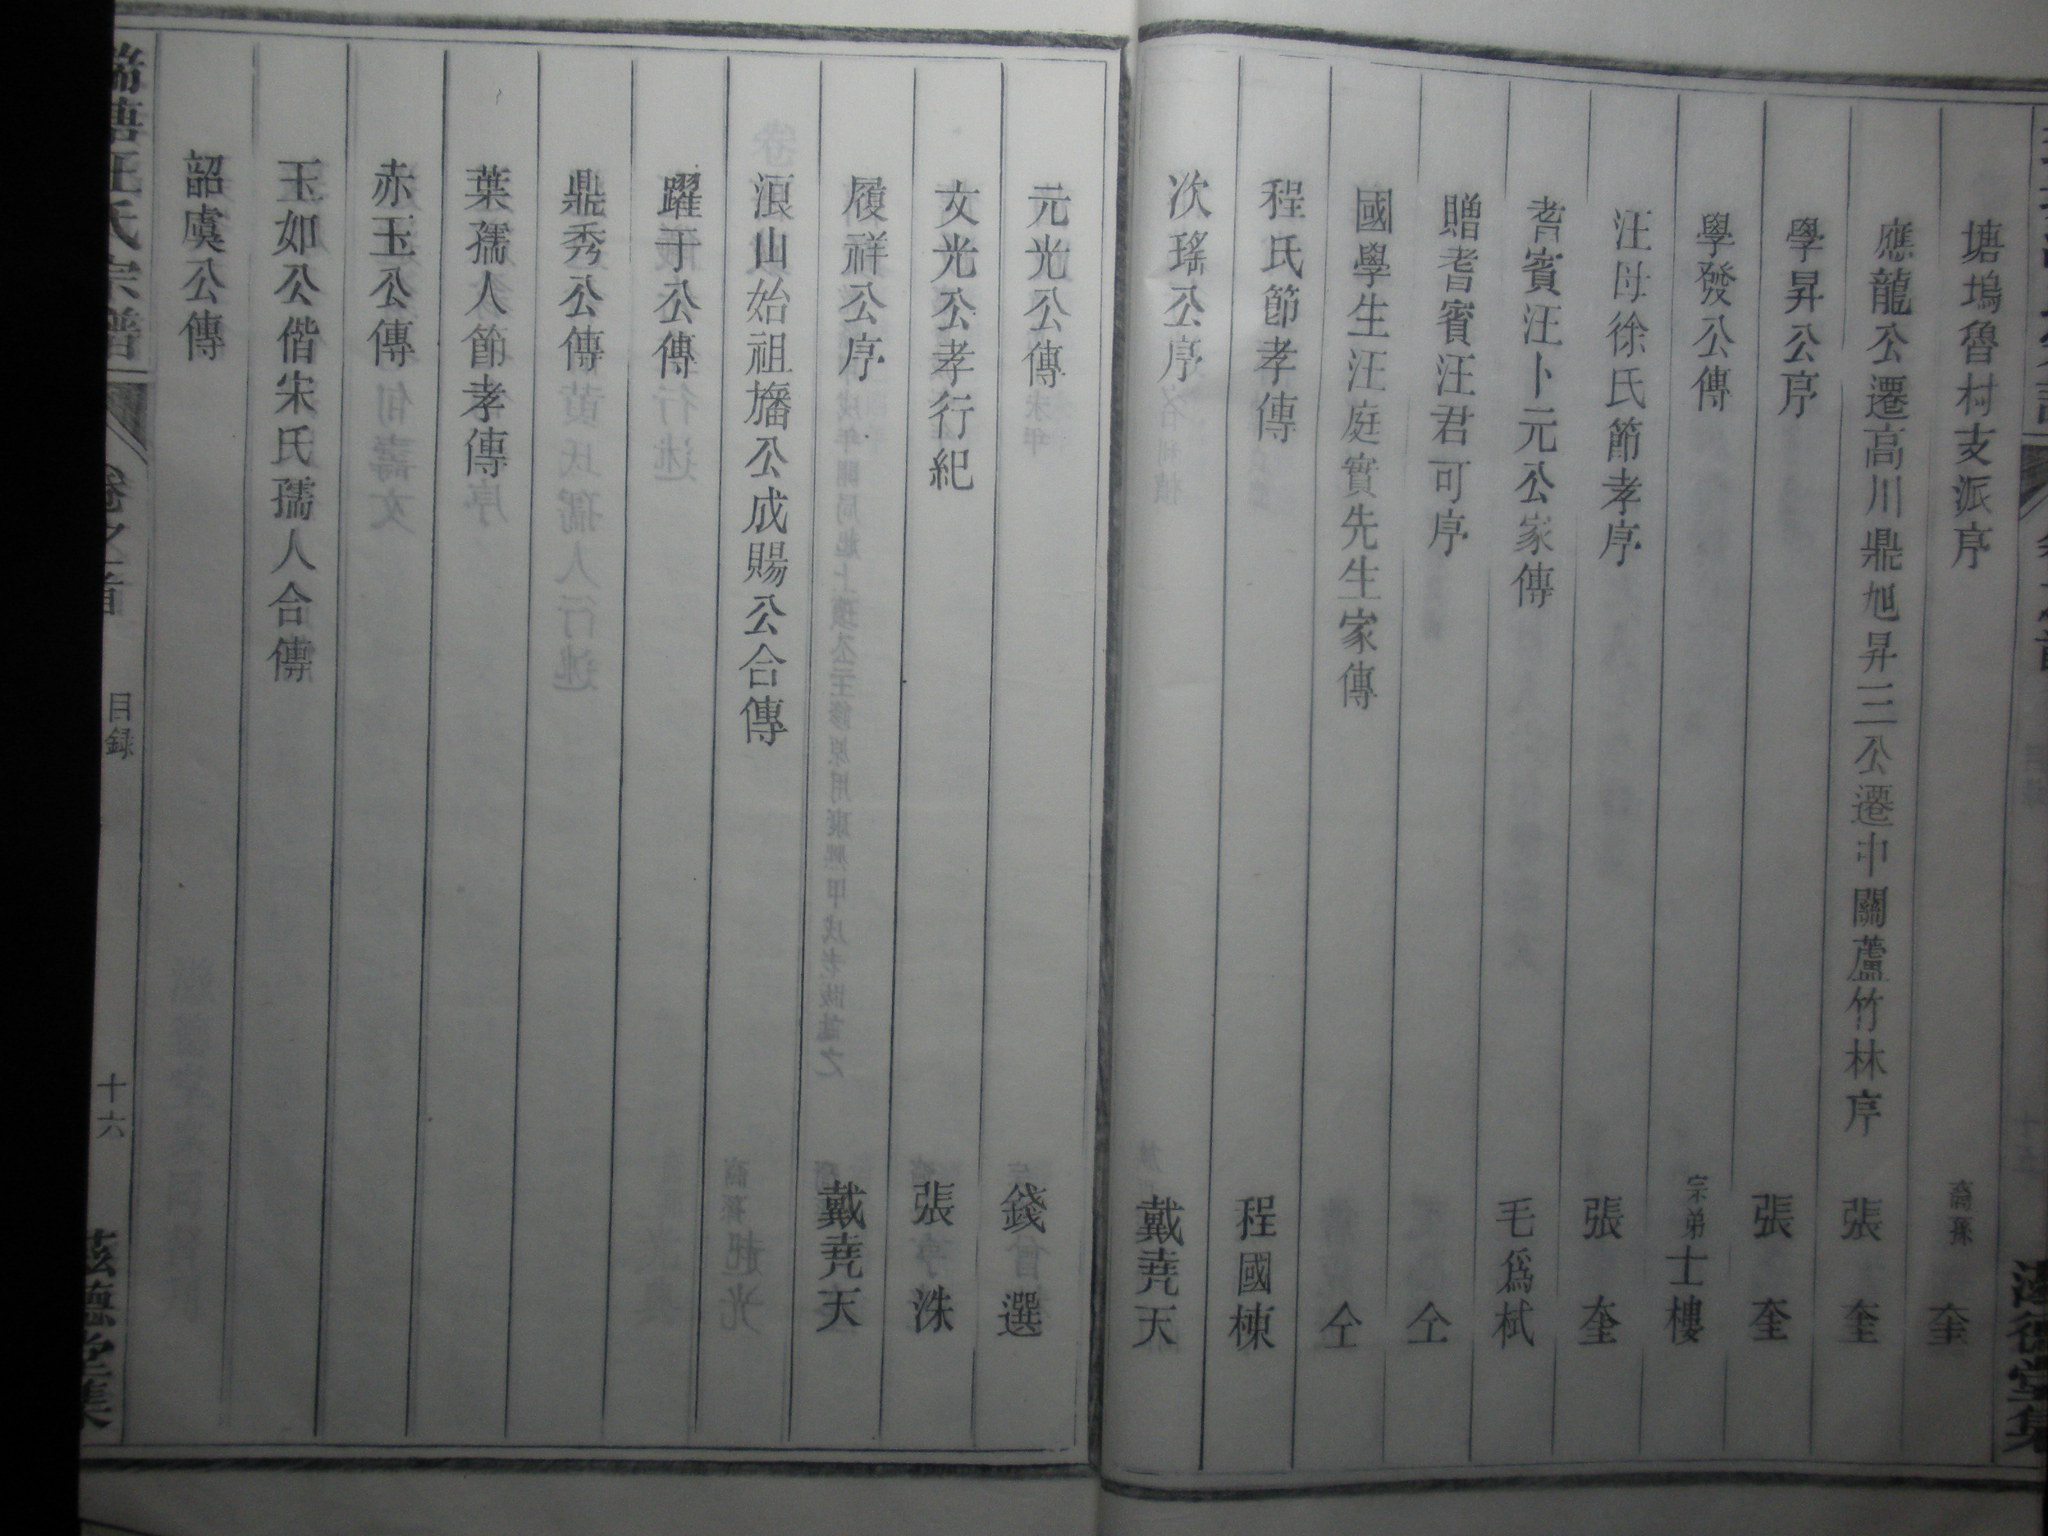 塘塢魯村支派序 裔孫 奎
應龍公遷高川鼎旭昇三公遷中關蘆竹林序 張 奎
學昇公序 張 奎
學發公傳 宗弟 士樓
汪母徐氏節孝序 張 奎
耆賓汪卜元公家傳 毛爲栻
贈耆賓汪君可序 仝
國學生汪庭實先生家傳 仝
程氏節孝傳 程國棟
次瑤公序 戴堯天
元光公傳 錢 選
文光公孝行紀 張 洙
履祥公序 戴堯天
浪山始祖旛公成賜公合傳
躍于公傳
鼎秀公傳
葉孺人節孝傳
赤玉公傳
玉如公偕宋氏孺人合傳
韶虞公傳
汪氏宗譜 卷之首 目録 十六 德堂集